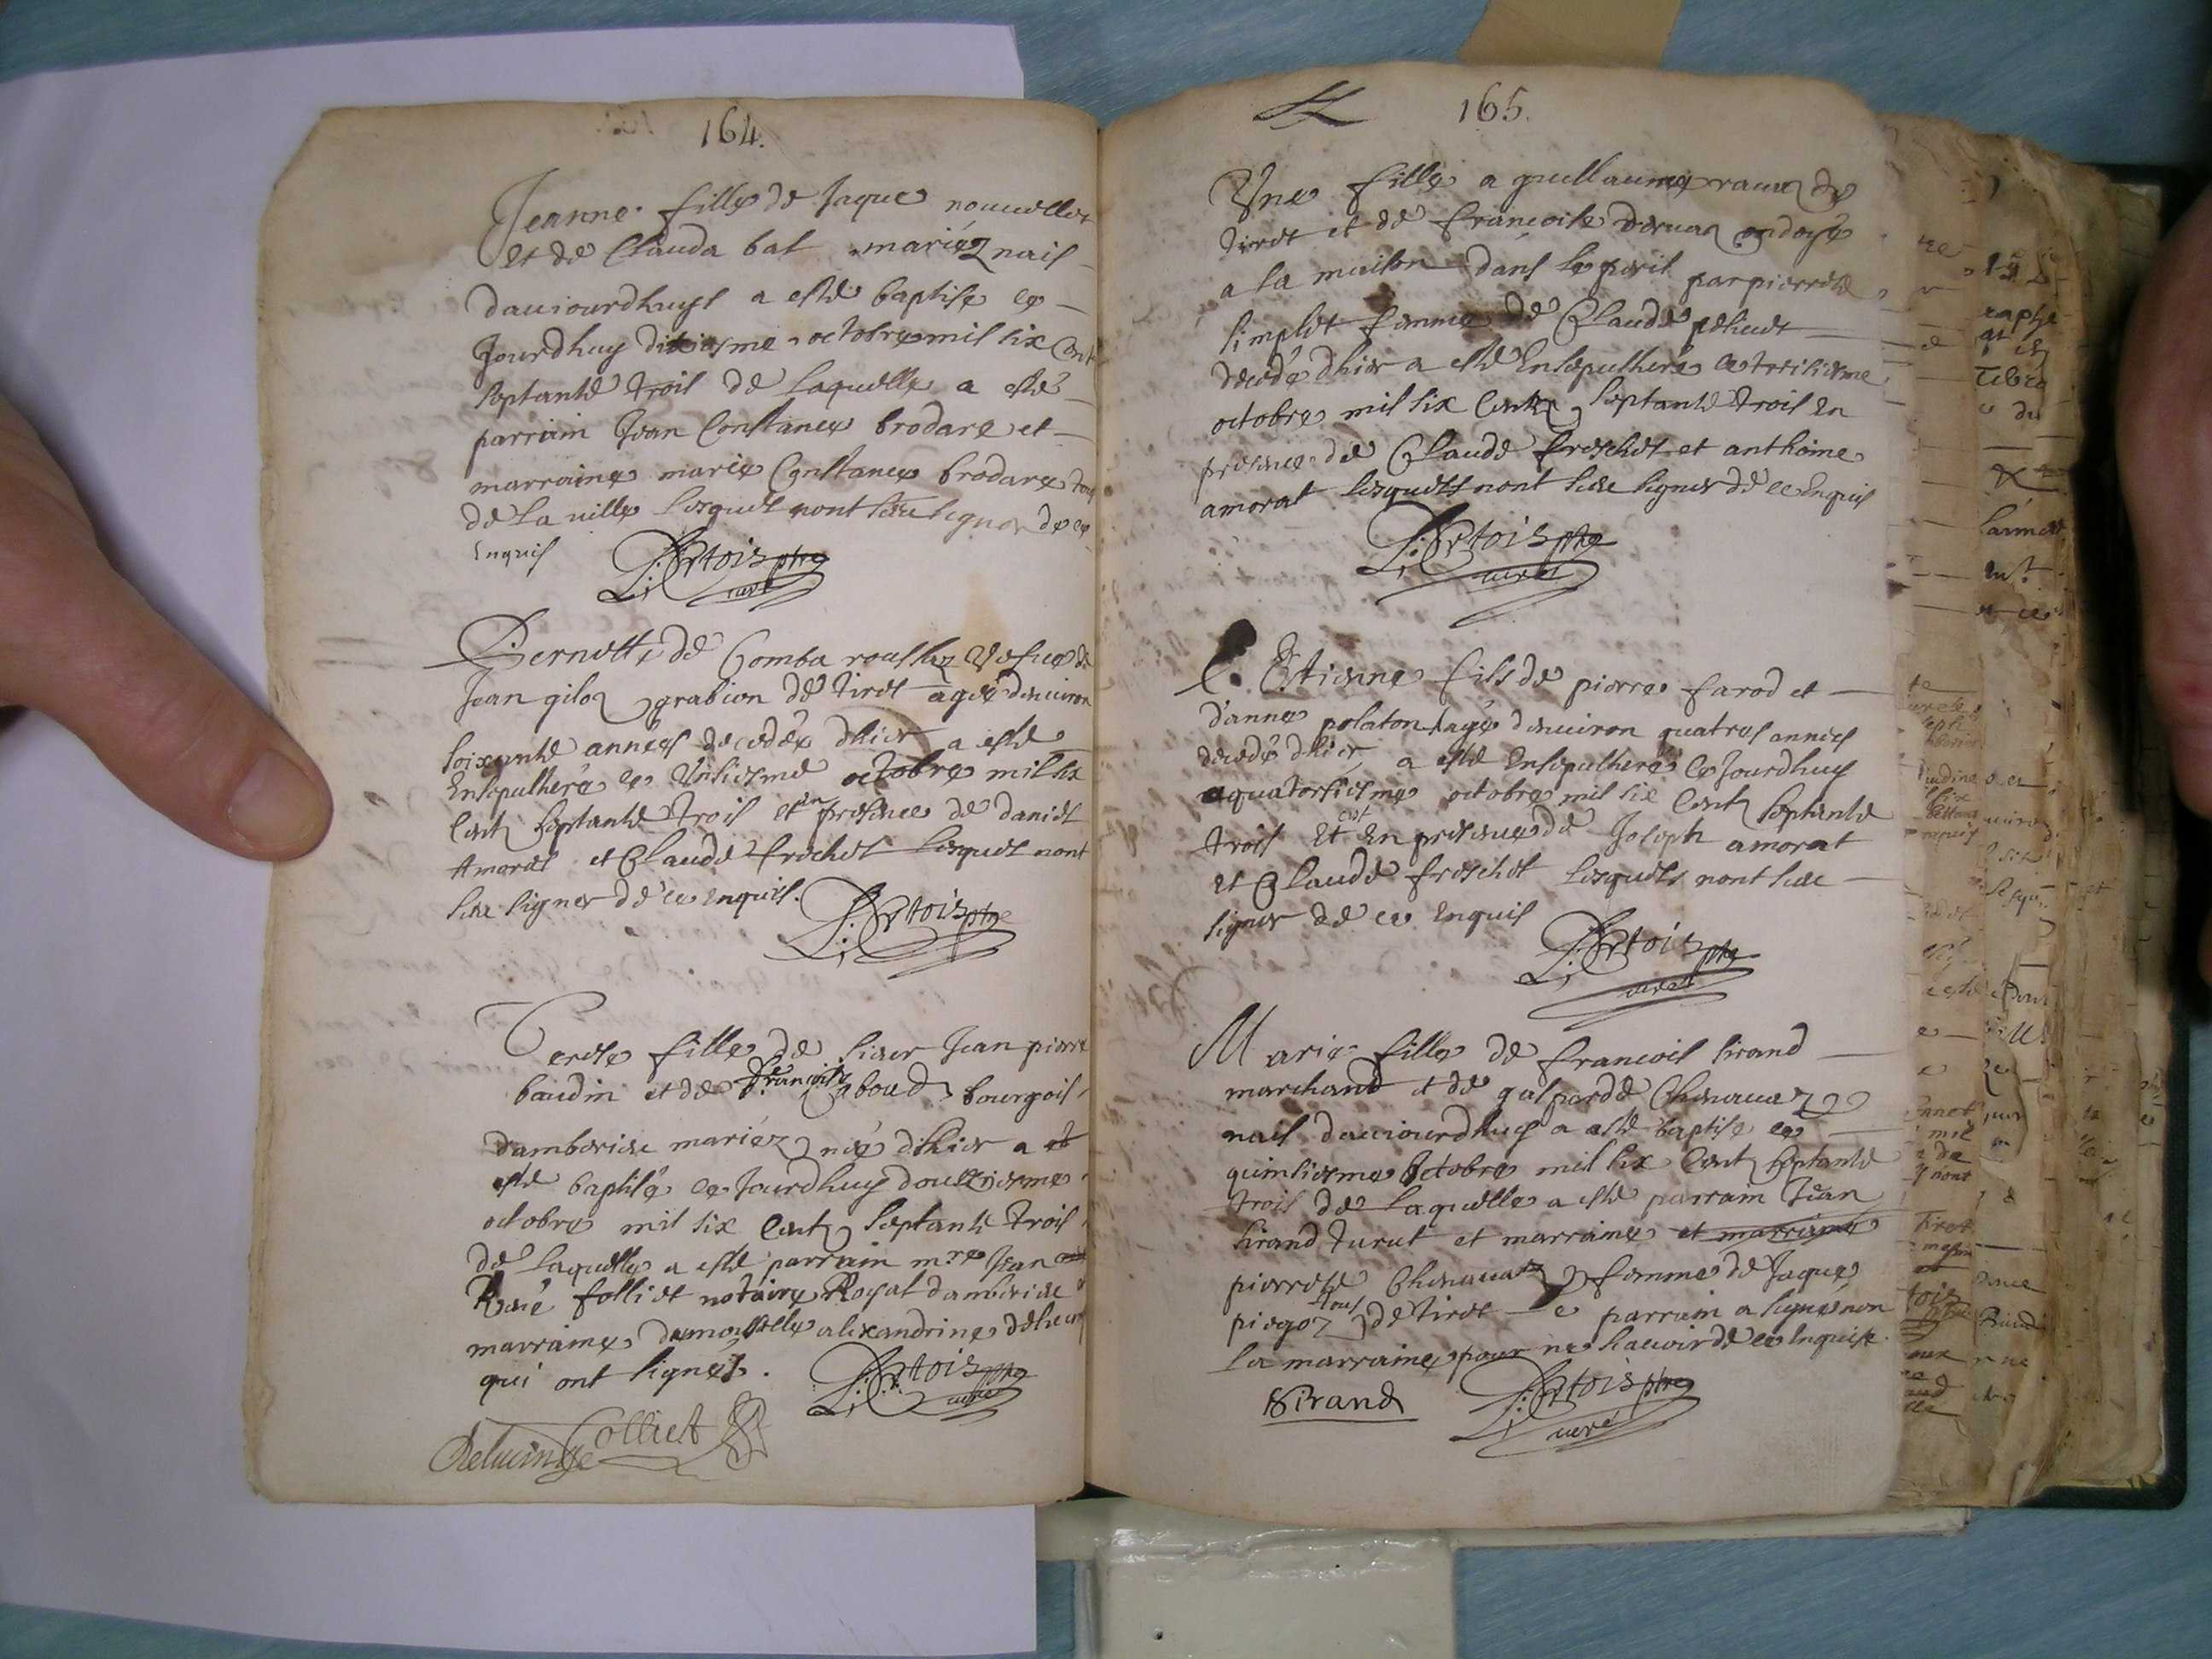 164.
Jeanne fille de Jaque nouvellet
et de Clauda bal mariéz nais
daujourdhuys a esté baptise ce
Jourdhuy dixiesme octobre mil six Cent
septante trois de laquelle a esté
parrain Jean Constance brodare et
marraine marie Constance brodare tous
de la ville lesquels nont sceu signer de ce
Enquis
L: Artois ptre
curé
Pernette de Comba roussaz vefue de
Jean giloz grabion de tiret agée denuiron
soixante années decedée dhier a esté
Ensepulheré ce Unsiesme octobre mil six
Cent septante trois et en presence de daniel
Amorat et Claude frochet lesquels nont
sceu signer de ce enquis.
L: Artois ptre
Terese fille de sieur Jean pierre
baudin et de françoise Caboud bourgois
damberieu mariéz née dhier a
esté baptisé ce Jourdhuy douziesme
octobre mil six Cent septante trois
de laquelle a esté parrain mre Jean
René folliet notaire Royal damberieu
marraine damoyselle alexandrine
qui ont signés.
L: Artois ptre
curé
Delucinge folliet
165.
Une fille a guillaume rauaz de
tiret et de francoise ondoyé
a la maison dans le peril par pierrette
simplet femme de Claude pehuet
decedé dhier a esté Ensepulheré ce tresiesme
octobre mil six Cent septante trois En
presence de Claude froschet et anthoine
amorat lesquels nont sceu signer de ce Enquis
L: Artois ptre
curé
Etienne fils de pierre farod et
d'anne polaton agé denuiron quatres années
decedé dhier a esté ensepulheré ce Jourdhuy
quatorsiesme octobre mil six Cent septante
trois et cest En presence de Joseph amorat
et Claude froschet lesquels nont sceu
signer de ce Enquis
L: Artois ptre
curé
Marie fille de francois sirand
marchand et de gasparde Chenauaz
nais daujourdhuy a esté baptise ce
quinsiesme octobre mil six Cent septante
trois de laquelle a esté parrain Jean
sirand turut et marraine et marraine
pierrete Chenauaz femme de Jaque
piegoz tous de tiret le parrain a signé non
la marraine pour ne scauoir de ce Enquise.
Sirand
L: Artois ptre
curé